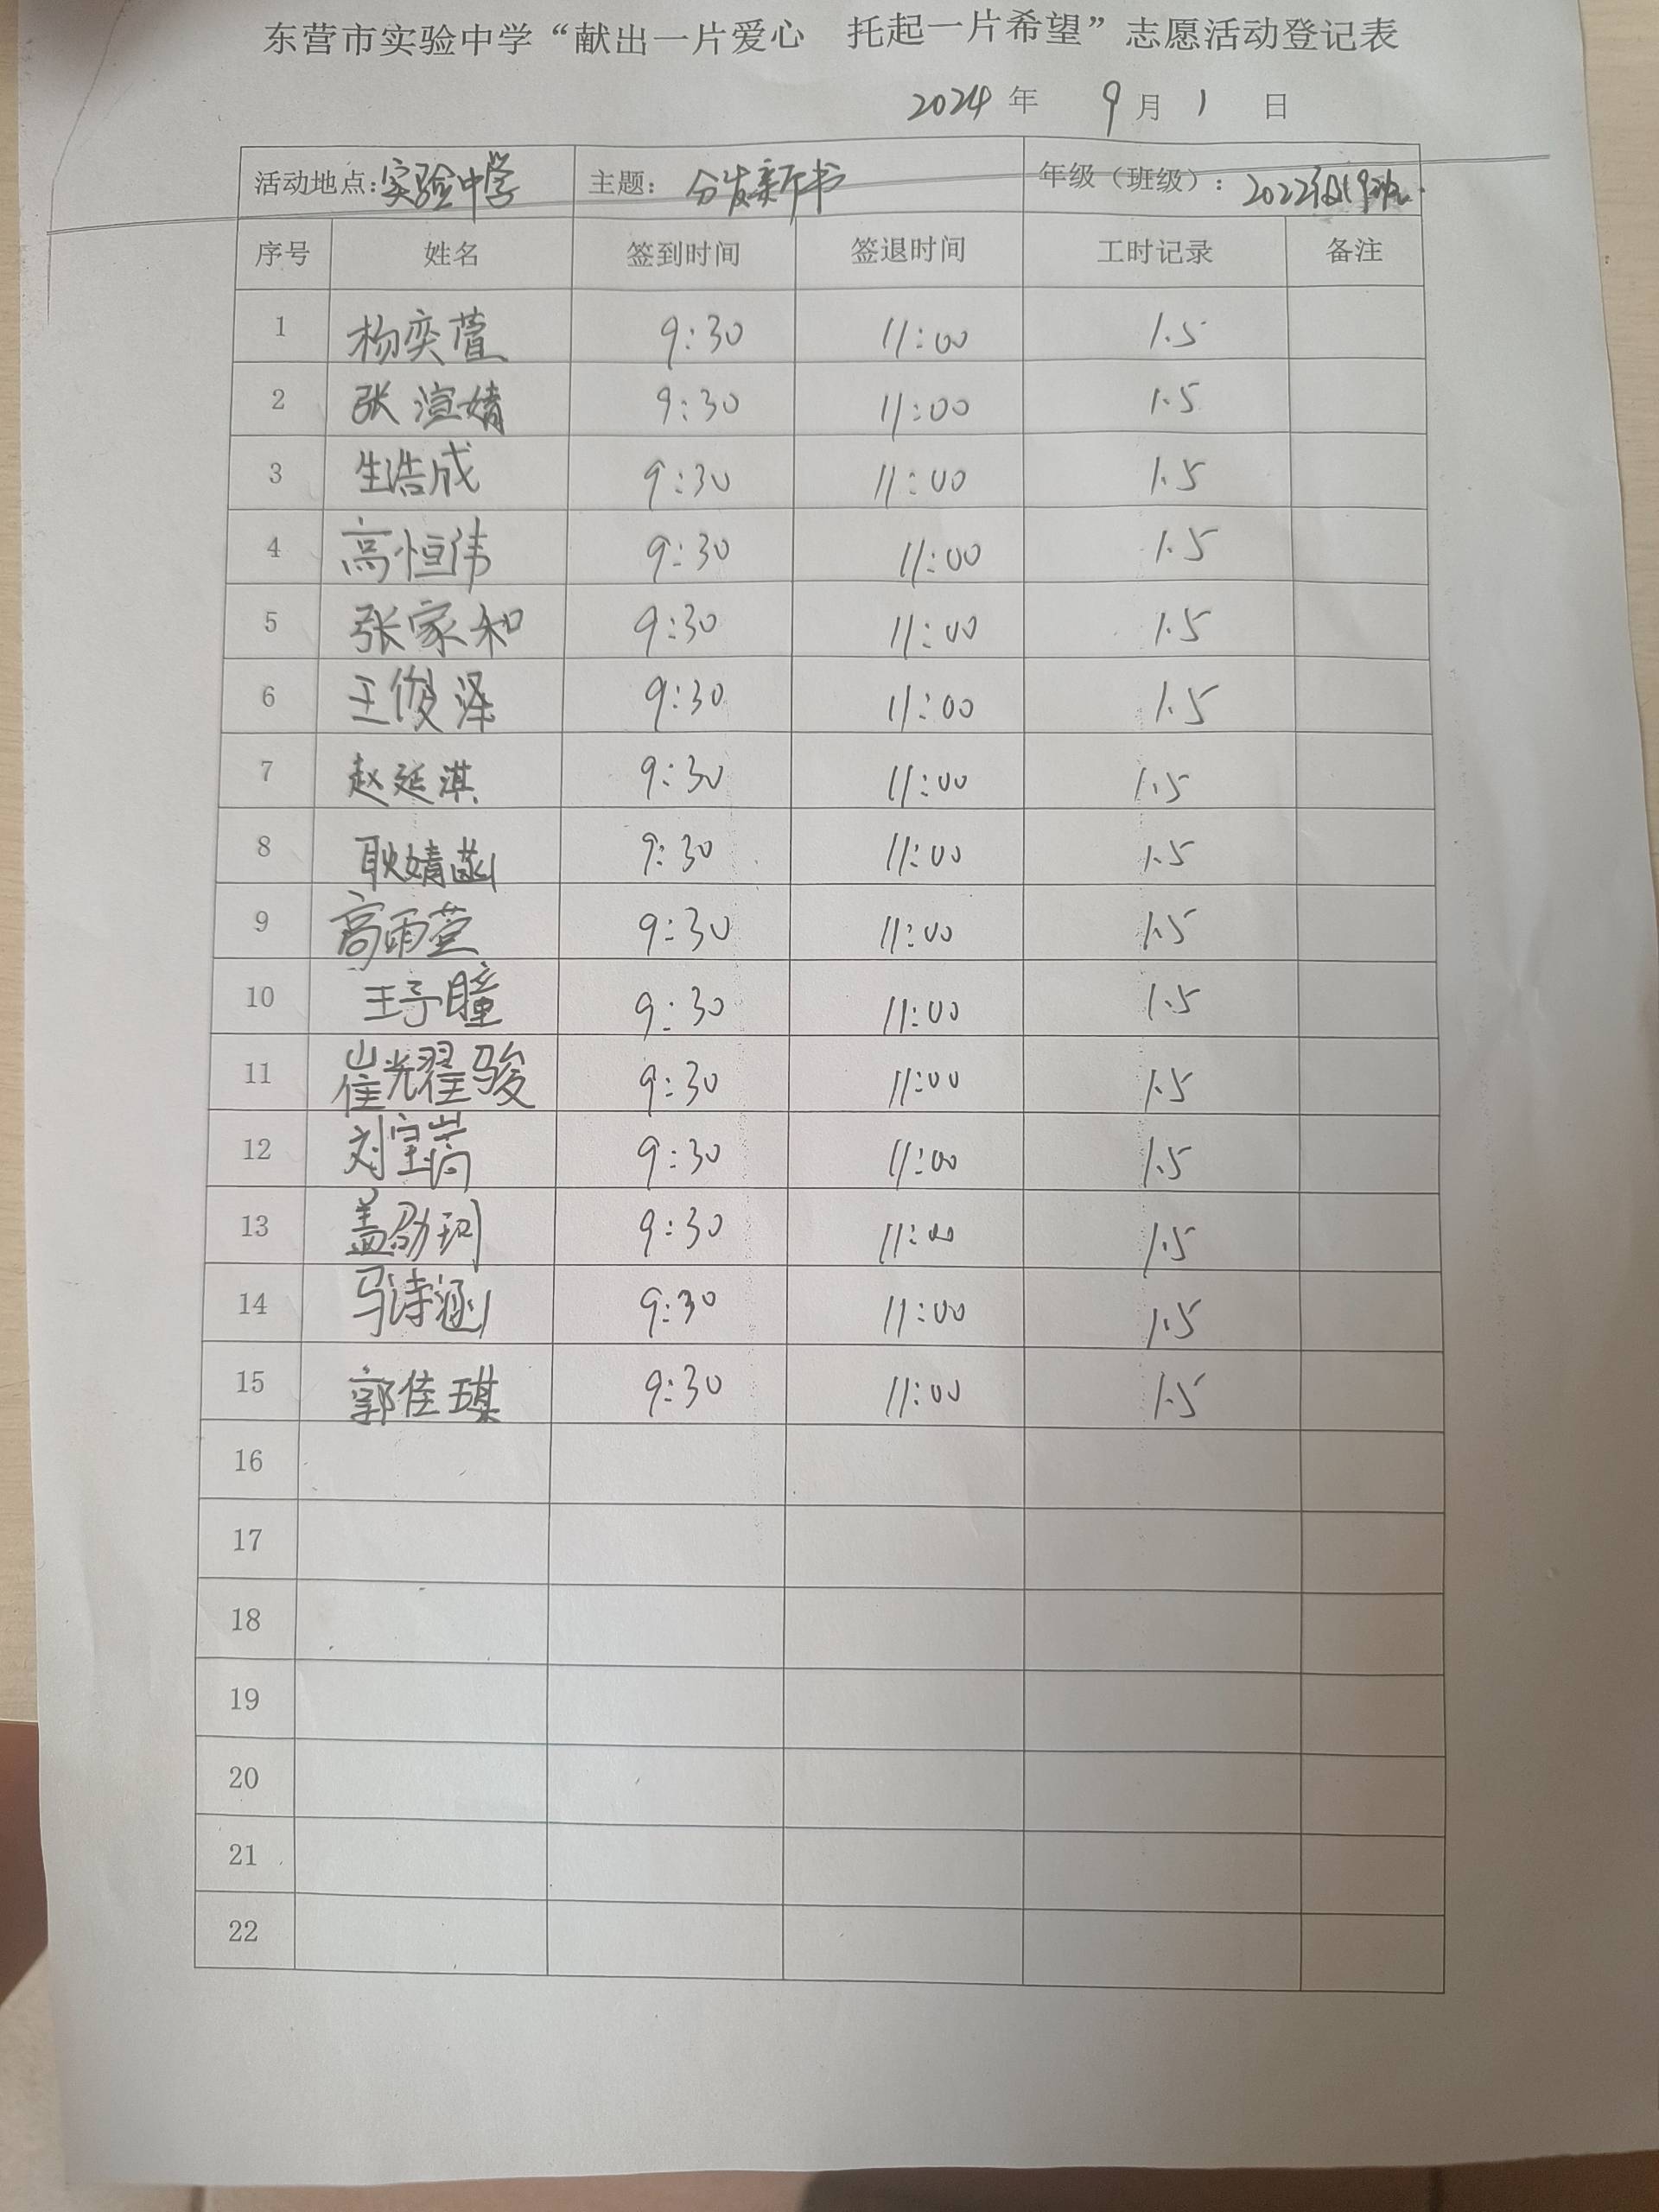 东营市实验中学“献出一片爱心 托起一片希望”志愿活动登记表
2024 年 9 月 1 日
活动地点:实验中学 主题: 分发新书 年级（班级）: 2022级19班
序号 姓名 签到时间 签退时间 工时记录 备注
1 杨奕萱 9:30 11:00 1.5
2 张渲婧 9:30 11:00 1.5
3 生浩成 9:30 11:00 1.5
4 高恒伟 9:30 11:00 1.5
5 张家和 9:30 11:00 1.5
6 王俊泽 9:30 11:00 1.5
7 赵延淇 9:30 11:00 1.5
8 耿婧菡 9:30 11:00 1.5
9 高雨萱 9:30 11:00 1.5
10 王予瞳 9:30 11:00 1.5
11 崔耀骏 9:30 11:00 1.5
12 刘宝嵩 9:30 11:00 1.5
13 盖劭珂 9:30 11:00 1.5
14 马诗涵 9:30 11:00 1.5
15 郭佳琪 9:30 11:00 1.5
16
17
18
19
20
21
22